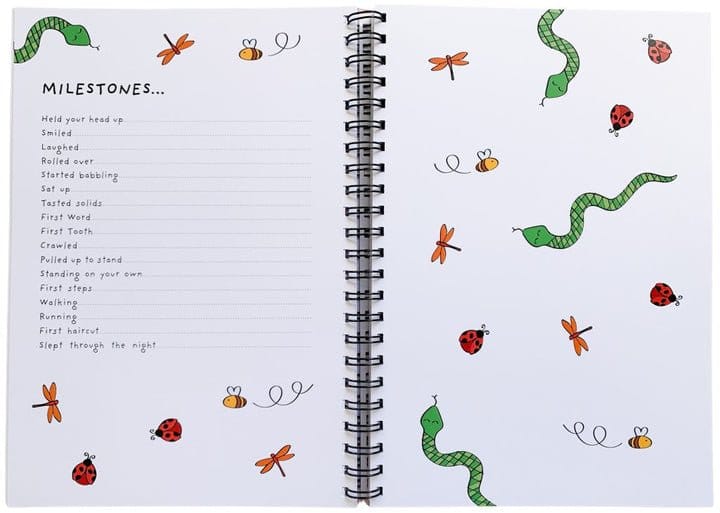 MILESTONES...
Held your head up
Smiled
Laughed
Rolled over
Started babbling
Sat up
Tasted solids
First Word
First Tooth
Crawled
Pulled up to stand
Standing on your own
First steps
Walking
Running
First haircut
Slept through the night